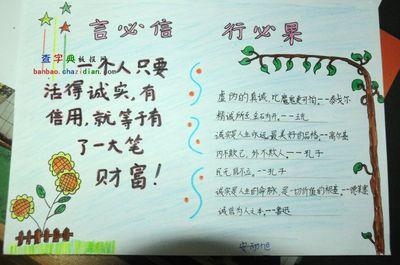 言必信 行必果
查字典板报
banbao.chazidian.com
一个人只要
活得诚实,有
信用,就等于有
了一大笔
财富!
虚伪的真诚,比魔鬼更可怕。--泰戈尔
精诚所至,金石为开。--王充
诚实是人生永远最美好的品格。--高尔基
内不欺己,外不欺人。--孔子
民无信不立。--孔子
诚实是人生的命脉,是一切价值的根基。--德莱塞
诚信为人之本。--鲁迅